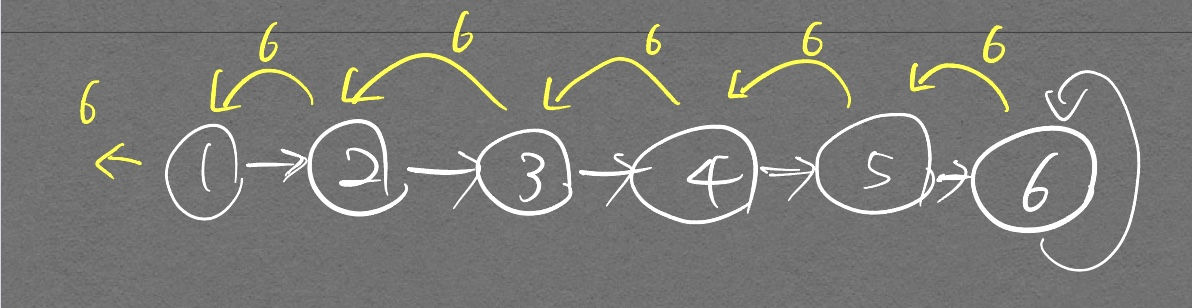 6 6 6 6 6
6
1 2 3 4 5 6